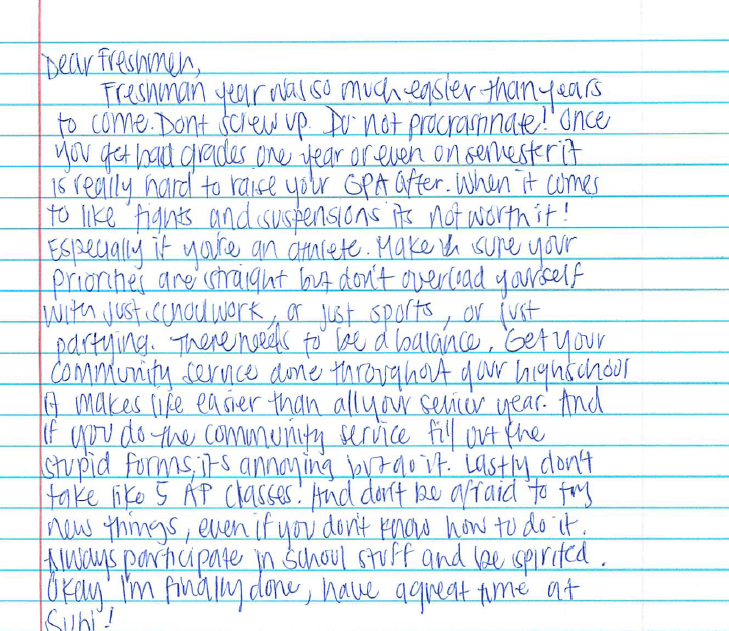 Dear Freshmen,
Freshman year was so much easier than years
to come. Dont screw up. Do not procrastinate! Once
you get bad grades one year or even on semester it
is really hard to raise your GPA after. When it comes
to like fights and suspensions its not worth it!
Especially if you're an athlete. Make sure your
priorities are straight but don't overload yourself
with just schoolwork, or just sports, or just
partying. There needs to be a balance. Get your
community service done throughout your highschool
it makes life easier than all your senior year. And
if you do the community service fill out the
stupid forms, it's annoying but do it. Lastly don't
take like 5 AP classes. And don't be afraid to try
new things, even if you don't know how to do it.
Always participate in school stuff and be spirited.
Okay I'm finally done, have a great time at